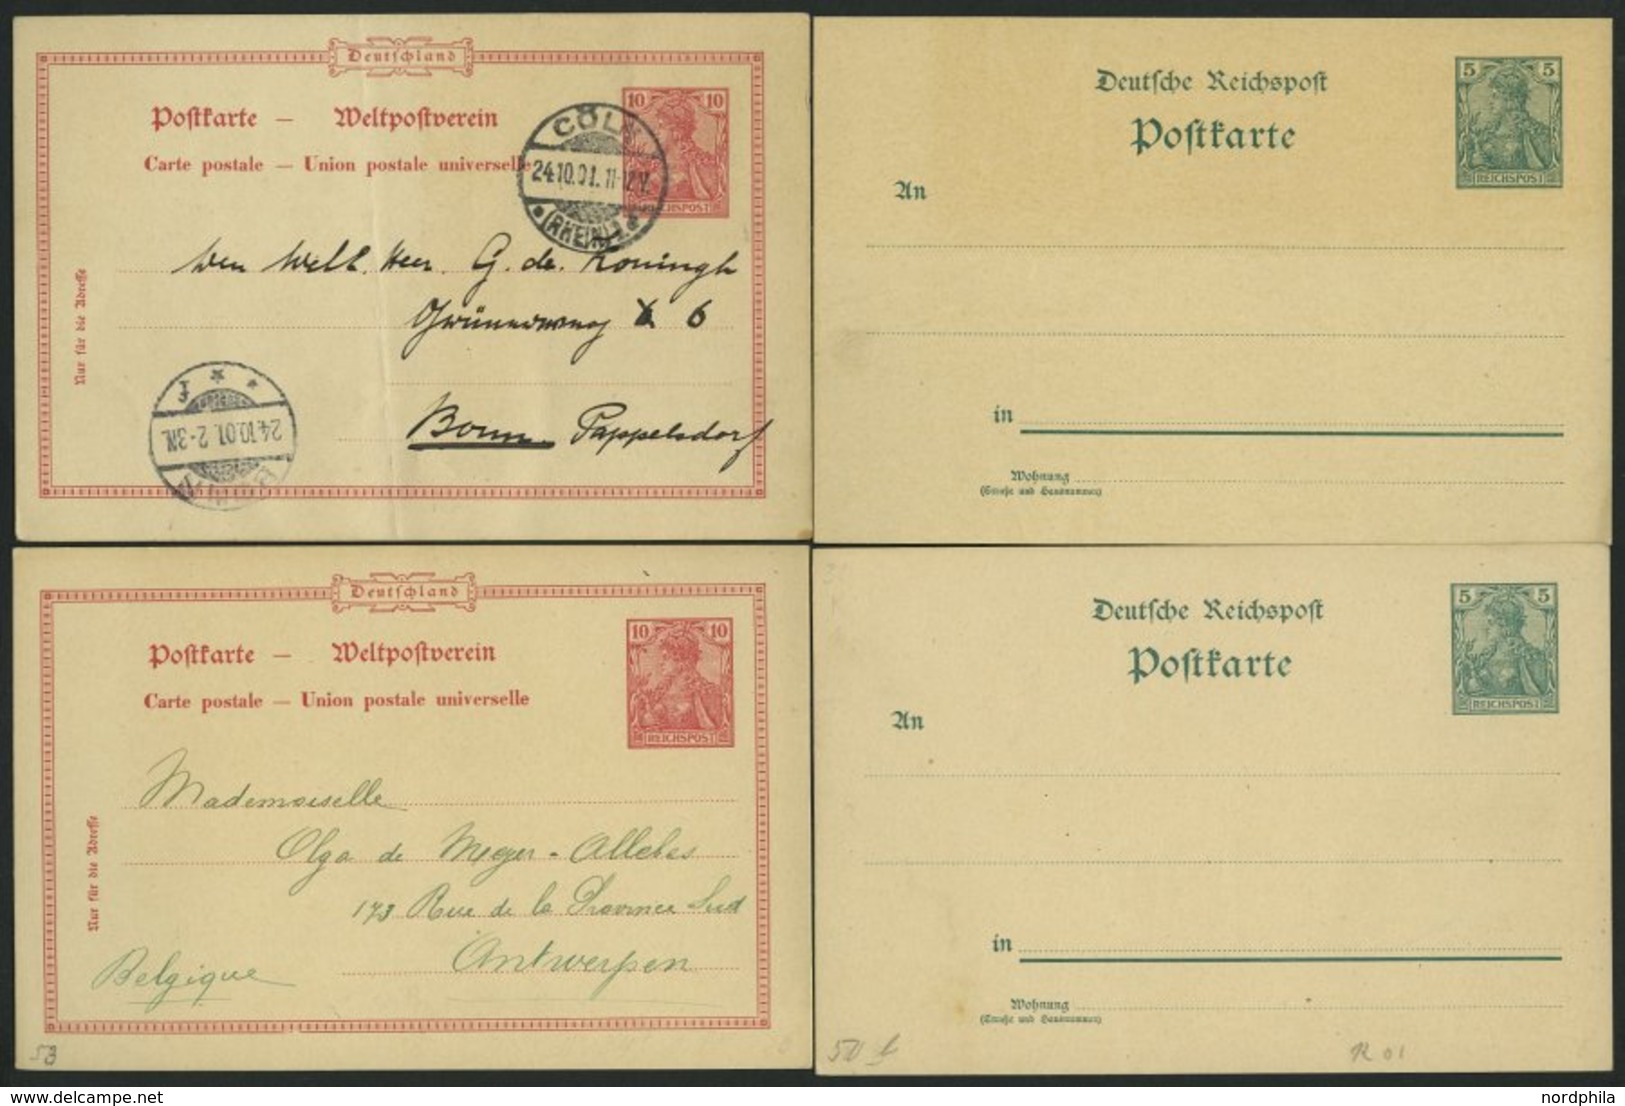 Deutschland
Postkarte — Weltpostverein
Carte postale — Union postale universelle
10 10
REICHSPOST
CÖLN
24.10.01. 11-12 V.
(RHEIN) 1
Nur für die Adresse
G. de Koningh
6
Bonn Poppelsdorf
24.10.01. 2-3N.
Deutsche Reichspost
Postkarte
5 5
REICHSPOST
An
in
Wohnung
(Straße und Hausnummer)
Deutschland
Postkarte — Weltpostverein
Carte postale — Union postale universelle
10 10
REICHSPOST
Nur für die Adresse
Mademoiselle
Olga de
173 Rue de la Province Sud
Antwerpen
Belgique
Deutsche Reichspost
Postkarte
5 5
REICHSPOST
An
in
Wohnung
(Straße und Hausnummer)
nordphila